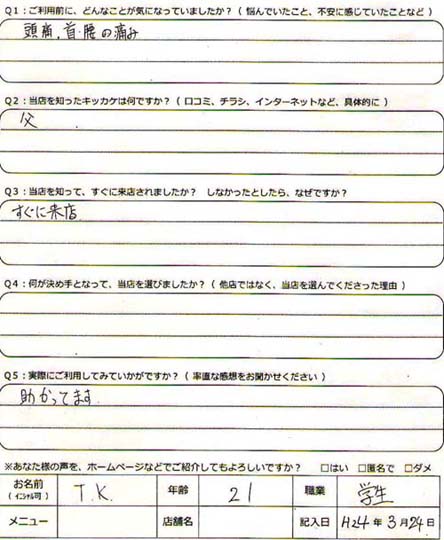 Q1：ご利用前に、どんなことが気になっていましたか？（ 悩んでいたこと、不安に感じていたことなど ）
頭痛、首・腰の痛み
Q2：当店を知ったキッカケは何ですか？（ 口コミ、チラシ、インターネットなど、具体的に ）
父
Q3：当店を知って、すぐに来店されましたか？ しなかったとしたら、なぜですか？
すぐに来店
Q4：何が決め手となって、当店を選びましたか？（ 他店ではなく、当店を選んでくださった理由 ）
Q5：実際にご利用してみていかがですか？（ 率直な感想をお聞かせください ）
助かってます
※あなた様の声を、ホームページなどでご紹介してもよろしいですか？ □はい □匿名で □ダメ
お名前（ イニシャル可 ） T.K. 年齢 21 職業 学生
メニュー 店舗名 記入日 H24年3月24日